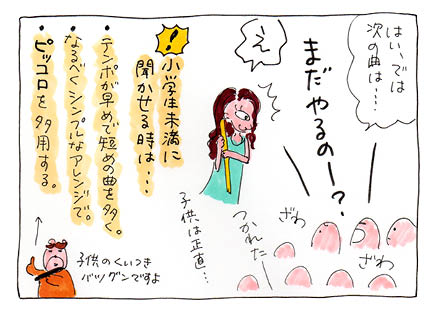 はい、では
次の曲は・・・・
まだやるのー?
え
ざわ
ざわ
つかれたー
子供は正直・・・
!
小学生未満に
聞かせる時は・・・
・テンポが早めで短めの曲を多く。
・なるべくシンプルなアレンジで。
・ピッコロを多用する。
子供のくいつき
バツグンですよ